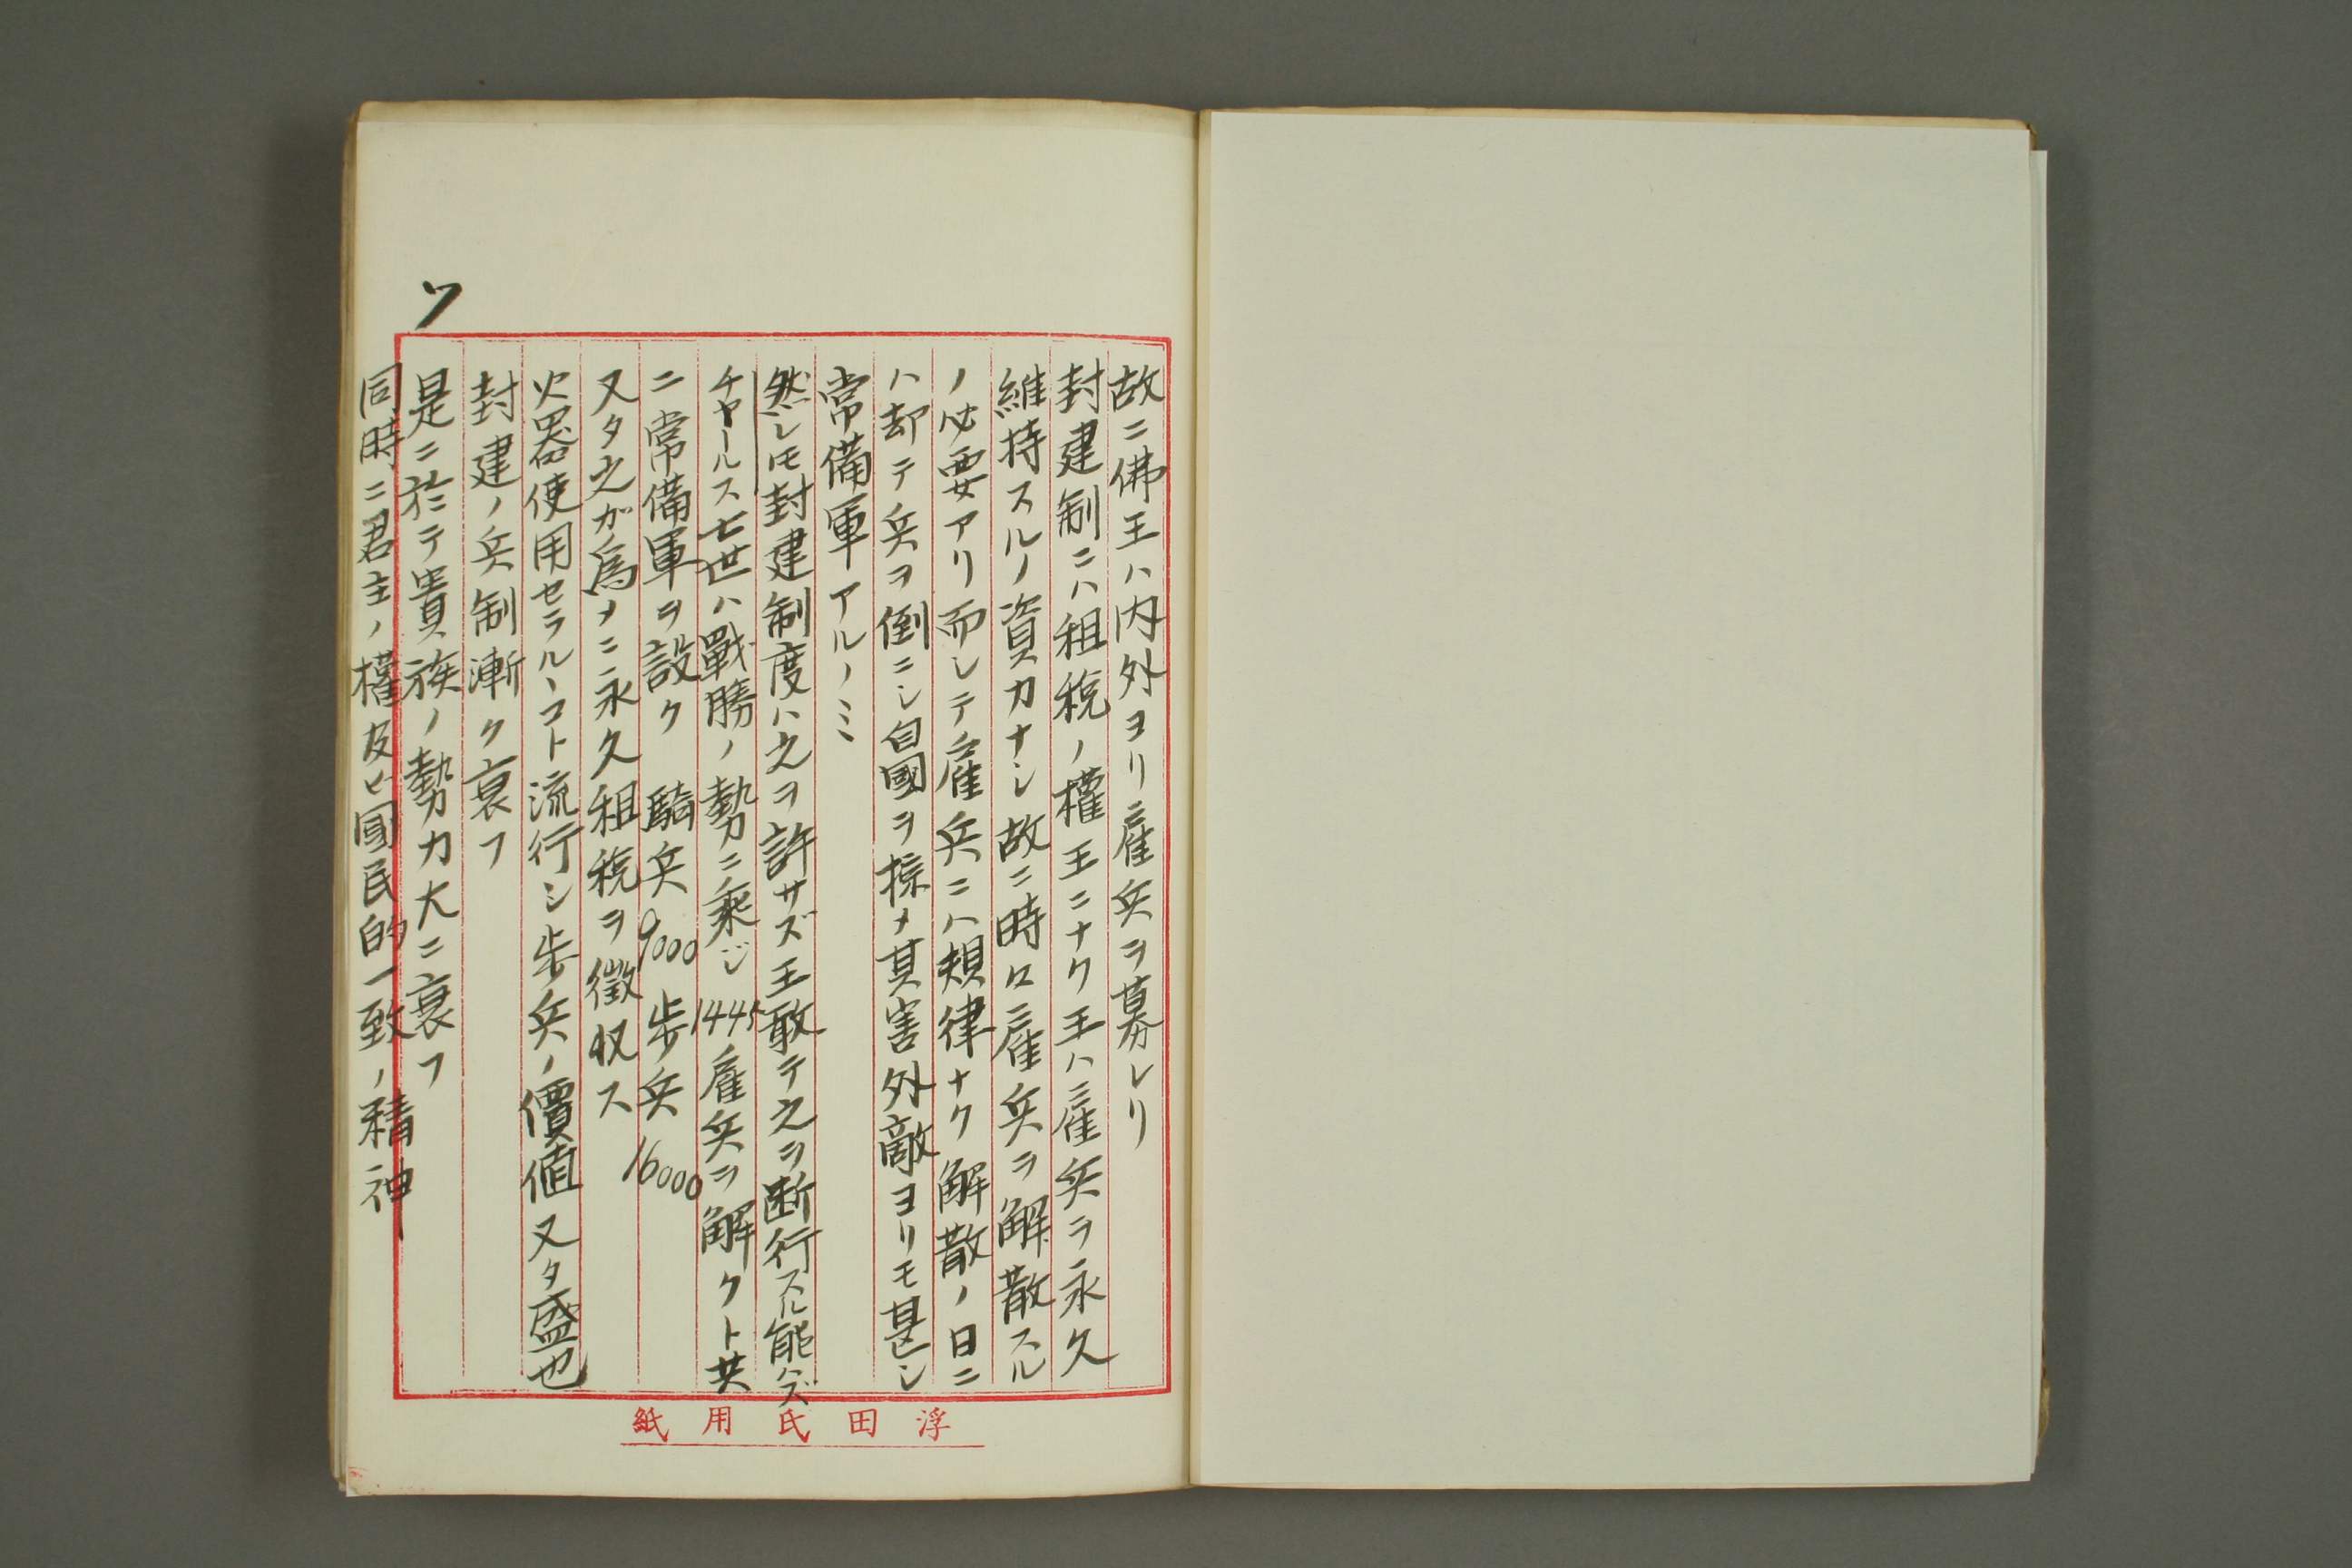 故ニ佛王ハ内外ヨリ雇兵ヲ募レリ
封建制ニハ租税ノ權王ニナク王ハ雇兵ヲ永久
維持スルノ資力ナシ故ニ時々雇兵ヲ解散スル
ノ必要アリ而シテ雇兵ニハ規律ナク解散ノ日ニ
ハ却テ兵ヲ倒ニシ自國ヲ掠メ其害外敵ヨリモ甚シ
常備軍アルノミ
然レモ封建制度ハ之ヲ許サズ王敢テ之ヲ断行スル能ハズ
チャールス七世ハ戰勝ノ勢ニ乘ジ1445ノ雇兵ヲ解クト共
ニ常備軍ヲ設ク 騎兵9000 歩兵16000
又タ之ガ為メニ永久租税ヲ徴収ス
火器使用セラルヽコト流行シ歩兵ノ價値又タ盛也
封建ノ兵制漸ク衰フ
是ニ於テ貴族ノ勢力大ニ衰フ
同時ニ君主ノ權及ヒ國民的一致ノ精神
浮田氏用紙